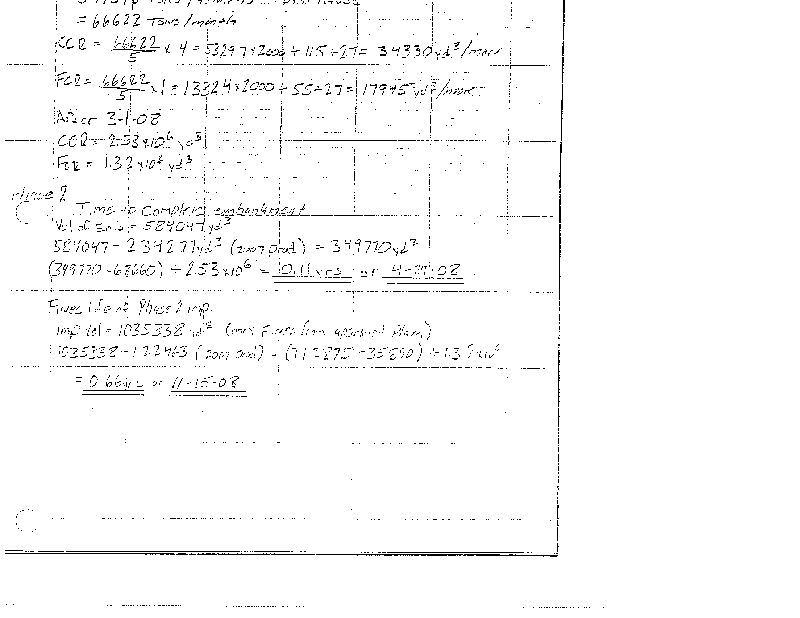 = 66622 Tons/month
CCR = 66622/5 x 4 = 53297 x 2000 ÷ 115 ÷ 27 = 34330 yd³/month
FCR = 66622/5 x 1 = 13324 x 2000 ÷ 55 ÷ 27 = 17945 yd³/month
After 3-1-08
CCR = 2.53 x 10⁶ yd³
FCR = 1.32 x 10⁶ yd³
Phase 2
Time to Complete embankment
Vol of Emb = 584047 yd³
584047 - 234277 yd³ (2007 Prod) = 349770 yd³
(349770 - 68660) ÷ 2.53 x 10⁶ = 0.11 yrs or
Fines life of Phase 2 imp.
Imp Vol = 1035338 yd³ (max Fines from approved Plan)
1035338 - 122463 (2007 Prod) =
= 0.66 yrs or 11-15-08